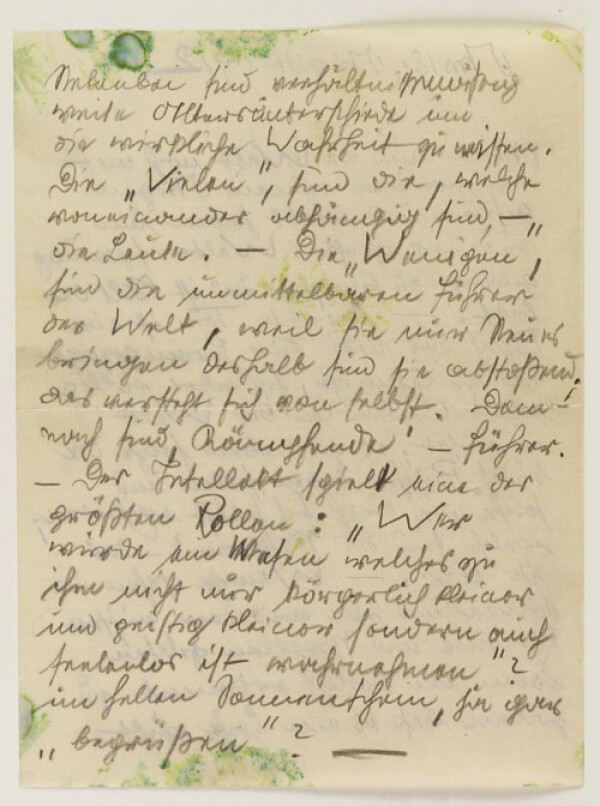 Nebenbei sind verhältnissmäsig
weite Altersunterschiede um
die wirkliche Wahrheit zu wissen.
Die „Vielen“, sind die, welche
voneinander abhängig sind, – „
die Leute. – Die „Wenigen“,
sind die unmittelbaren Führer
der Welt, weil sie nur Neues
bringen deshalb sind sie abstoßend,
das versteht sich von selbst. Dem-
nach sind Kämpfende! – Führer.
– Der Intellekt spielt eine der
größten Rollen: „Wer
würde ein Wesen welches zu
ihm nicht nur körperlich kleiner
und geistig kleiner sondern auch
seelenlos ist wahrnehmen“?
im hellen Sonnenschein, ja gar
„begrüßen“?